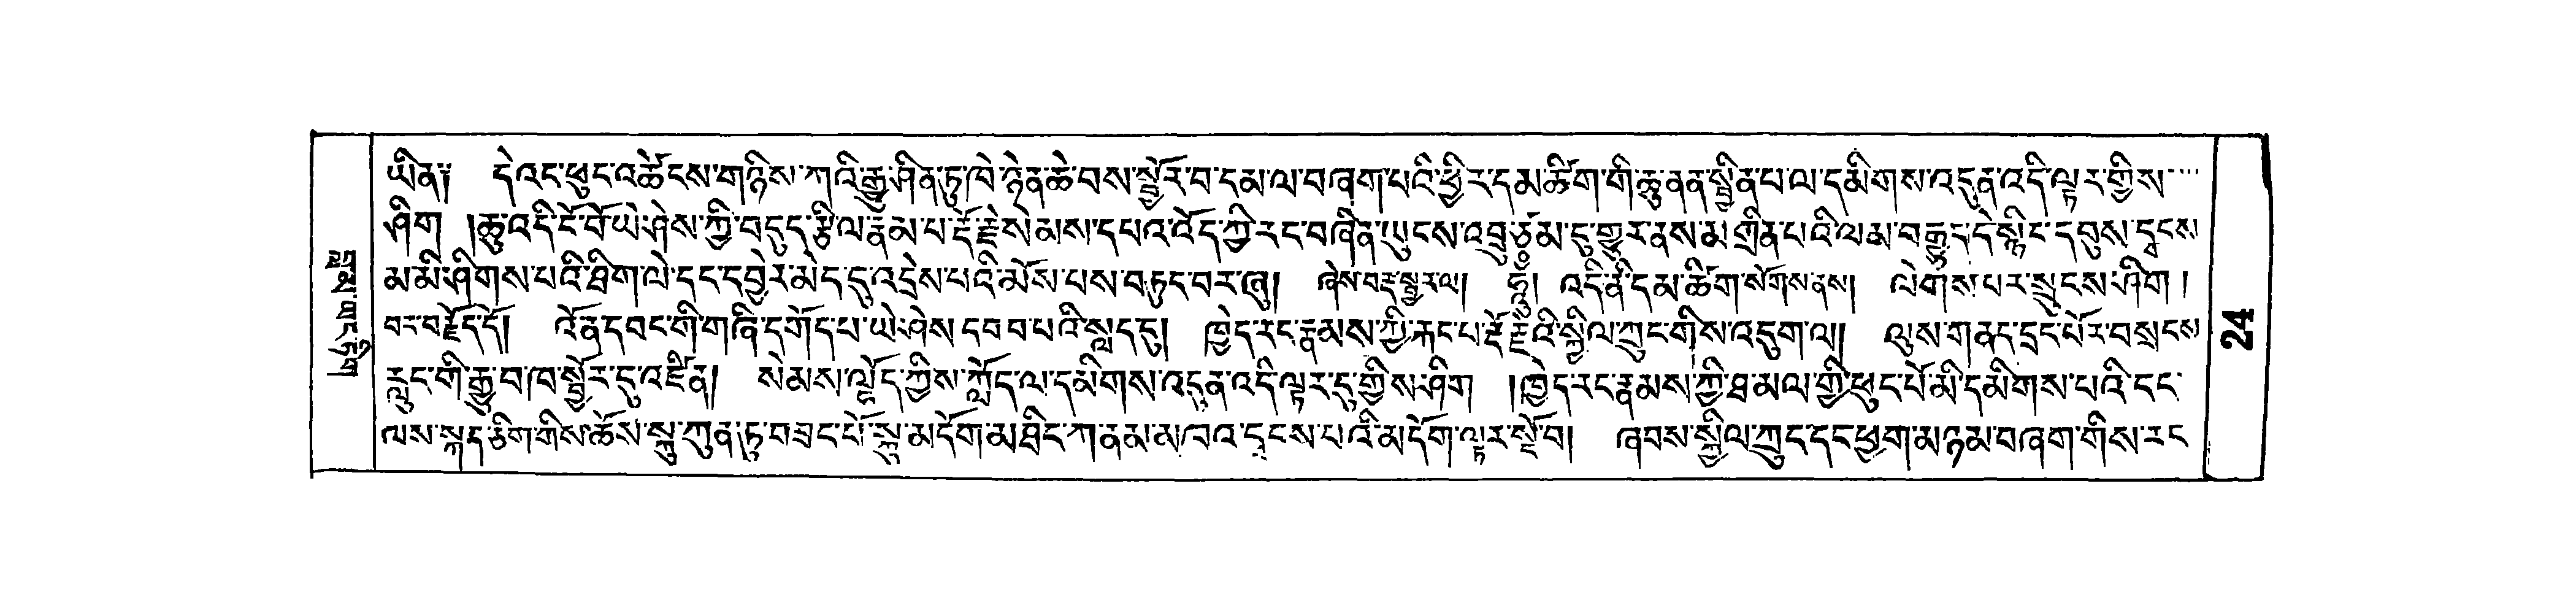 ཡིན༎ དེའང་ཕུང་འཚེངས་གཉིས་ཀའི་རྒྱུ་ཤིན་ཏུ་ཁེ་ཉེན་ཆེ་བས་སྦྱོར་བ་དམ་ལ་བཞག་པའི་ཕྱིར་དམ་ཚིག་གི་ཆུ་ནན་སྦྱིན་པ་ལ་དམིགས་འདུན་འདི་ལྟར་གྱིས་
ཤིག །ཆུ་འདི་ངོ་བོ་ཡེ་ཤེས་ཀྱི་བདུད་རྩི་ལ་རྣམ་པ་རྡོ་རྗེ་སེམས་དཔའ་འོད་ཀྱི་རང་བཞིན་ཡུངས་འབྲུ་ཙམ་དུ་གྱུར་ནས་མགྲིན་པའི་ལམ་བརྒྱུད་དེ་སྙིང་དབུས་དྭངས་
མ་མི་ཤིགས་པའི་ཐིག་ལེ་དང་དབྱེར་མེད་དུ་འདྲེས་པའི་མོས་པས་བཏུང་བར་ཞུ། ཞེས་བརྡ་སྦྱར་ལ། ཧཱུྃ། འདི་ནི་དམ་ཚིག་སོགས་ནས། ལེགས་པར་སྲུངས་ཤིག །
བར་བརྗོད་དོ། འོན་དབང་གི་གཞི་དགོད་པ་ཡེ་ཤེས་དབབ་པའི་སླད་དུ། ཁྱེད་རང་རྣམས་ཀྱི་རྐང་པ་རྡོ་རྗེའི་སྐྱིལ་ཀྲུང་གིས་འདུག་ལ། ལུས་གནད་དྲང་པོར་བསྲངས
རླུང་གི་རྒྱུ་བ་ཁ་སྦྱོར་དུ་འཛིན། སེམས་ལྷོད་ཀྱིས་ཀློད་ལ་དམིགས་འདུན་འདི་ལྟར་དུ་གྱིས་ཤིག །ཁྱེད་རང་རྣམས་ཀྱི་ཐ་མལ་གྱི་ཕུང་པོ་མི་དམིགས་པའི་ངང་
ལས་སྐད་ཅིག་གིས་ཆོས་སྐུ་ཀུན་ཏུ་བཟང་པོ་སྐུ་མདོག་མཐིང་ཀ་ནམ་མཁའ་དྭངས་པའི་མདོག་ལྟར་སྔོ་བ། ཞབས་སྐྱིལ་ཀྲུང་དང་ཕྱག་མཉམ་བཞག་གིས་རང